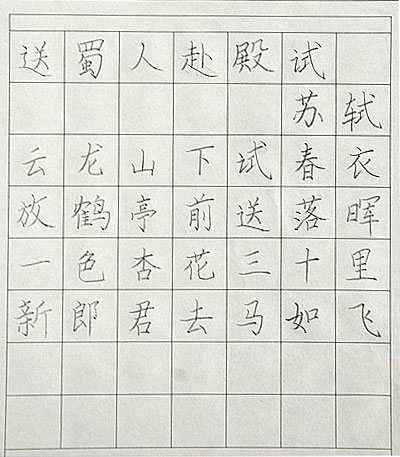 送蜀人赴殿试
苏轼
云龙山下试春衣
放鹤亭前送落晖
一色杏花三十里
新郎君去马如飞